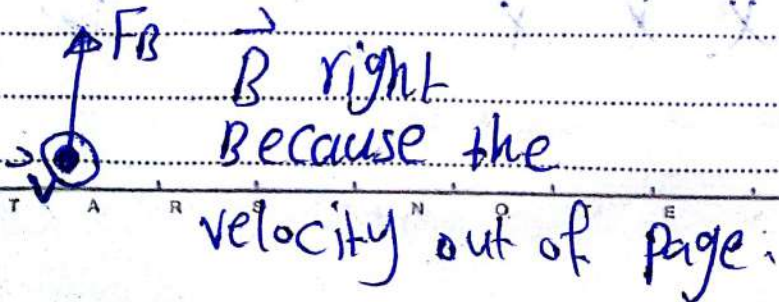 F_B
B⃗ right
Because the
v⃗
T A R S N O T E
velocity out of page.